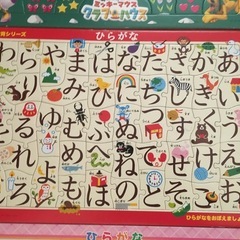 ミッキーマウス
クラブハウス
ひらがな
育シリーズ
あいうえお
かきくけこ
さしすせそ
たちつてと
なにぬねの
はひふへほ
まみむめも
やゆよ
らりるれろ
わ
ひらがなをおぼえまし
ひらがな